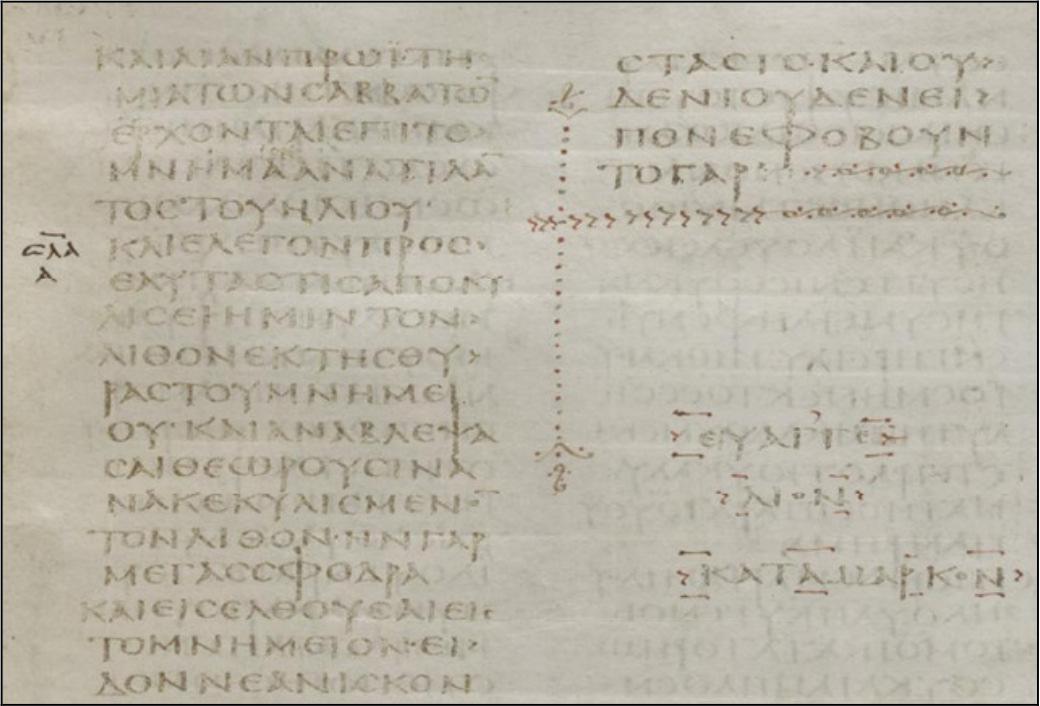 ΚΑΙΛΙΑΝΠΡΩΪΤΗ
ΜΙΑΤΩΝϹΑΒΒΑΤΩ̅
ΕΡΧΟΝΤΑΙΕΠΙΤΟ
ΜΝΗΜΑΑΝΑΤΙΛΑ̅
ΤΟϹΤΟΥΗΛΙΟΥ·
ϹΛΑ
Α
ΚΑΙΕΛΕΓΟΝΠΡΟϹ›
ΕΑΥΤΑϹΤΙϹΑΠΟΚΥ
ΛΙϹΕΙΗΜΙΝΤΟΝ›
ΛΙΘΟΝΕΚΤΗϹΘΥ›
ΡΑϹΤΟΥΜΝΗΜΕΙ
ΟΥ·ΚΑΙΑΝΑΒΛΕΨΑ
ϹΑΙΘΕΩΡΟΥϹΙΝΑ
ΝΑΚΕΚΥΛΙϹΜΕΝΟ̅
ΤΟΝΛΙΘΟΝ·ΗΝΓΑΡ
ΜΕΓΑϹϹΦΟΔΡΑ
ΚΑΙΕΙϹΕΛΘΟΥϹΑΙΕΙϹ
ΤΟΜΝΗΜΕΙΟΝ·ΕΙ›
ΔΟΝΝΕΑΝΙϹΚΟΝ
ϹΤΑϹΙϹ·ΚΑΙΟΥ›
ΔΕΝΙΟΥΔΕΝΕΙ›
ΠΟΝΕΦΟΒΟΥΝ
ΤΟΓΑΡ:
ΕΥΑΓΓΕ
ΛΙΟΝ
ΚΑΤΑΜΑΡΚΟΝ